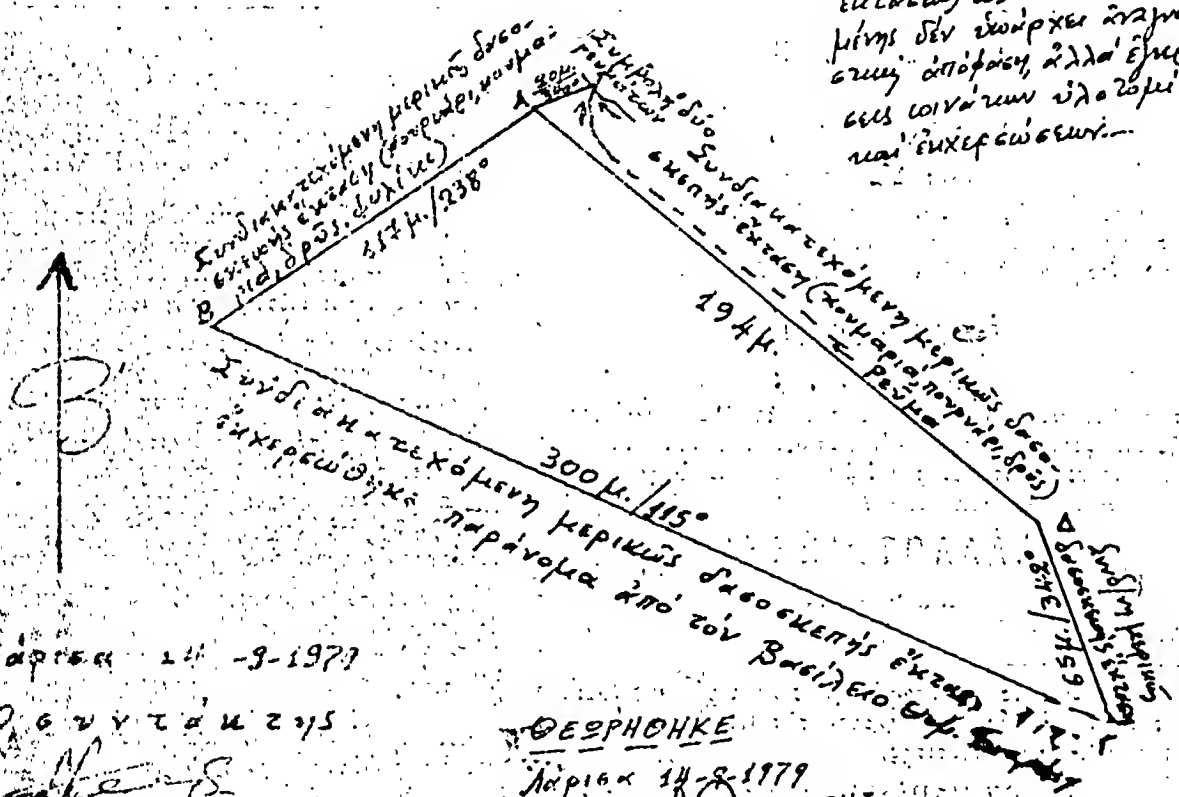 μένης δέν ὑπάρχει ἀναγνω-
στική ἀπόφαση, ἀλλά ἐγκρί-
σεις κοινάτων ὑλοτομι
καί ἐκχερσώσεων.--
Συνδιακατεχόμενη μερικῶς δασο-
σκεπής ἔκταση (πουρνάρι, κουμα-
ριά, δρῦς, φυλίκι)
157μ./238°
Α
20μ.
Συμβολή δύο
ρευμάτων
Συνδιακατεχόμενη μερικῶς δασο-
σκεπής ἔκταση (κουμαριά, πουρνάρι, δρῦς)
ρεῦμα
194μ.
Β
Β
300μ./115°
Συνδιακατεχόμενη μερικῶς δασοσκεπής ἔκταση
ἐκχερσώθηκε παράνομα ἀπό τόν Βασίλειο
Δ
65μ./342°
Συνδ/νη μερικῶς
δασοσκεπής ἔκταση
Γ
άρισα 14-9-1979
Ο συντάκτης
ΘΕΩΡΗΘΗΚΕ
Λάρισα 14-9-1979